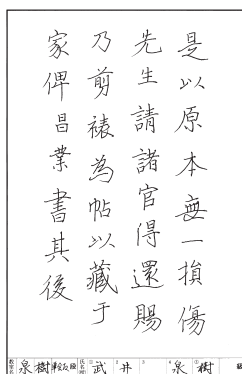 是以原本無一損傷
先生請諸官得還賜
乃剪裱為帖以藏于
家俾昌業書其後
泉樹 武井 泉樹